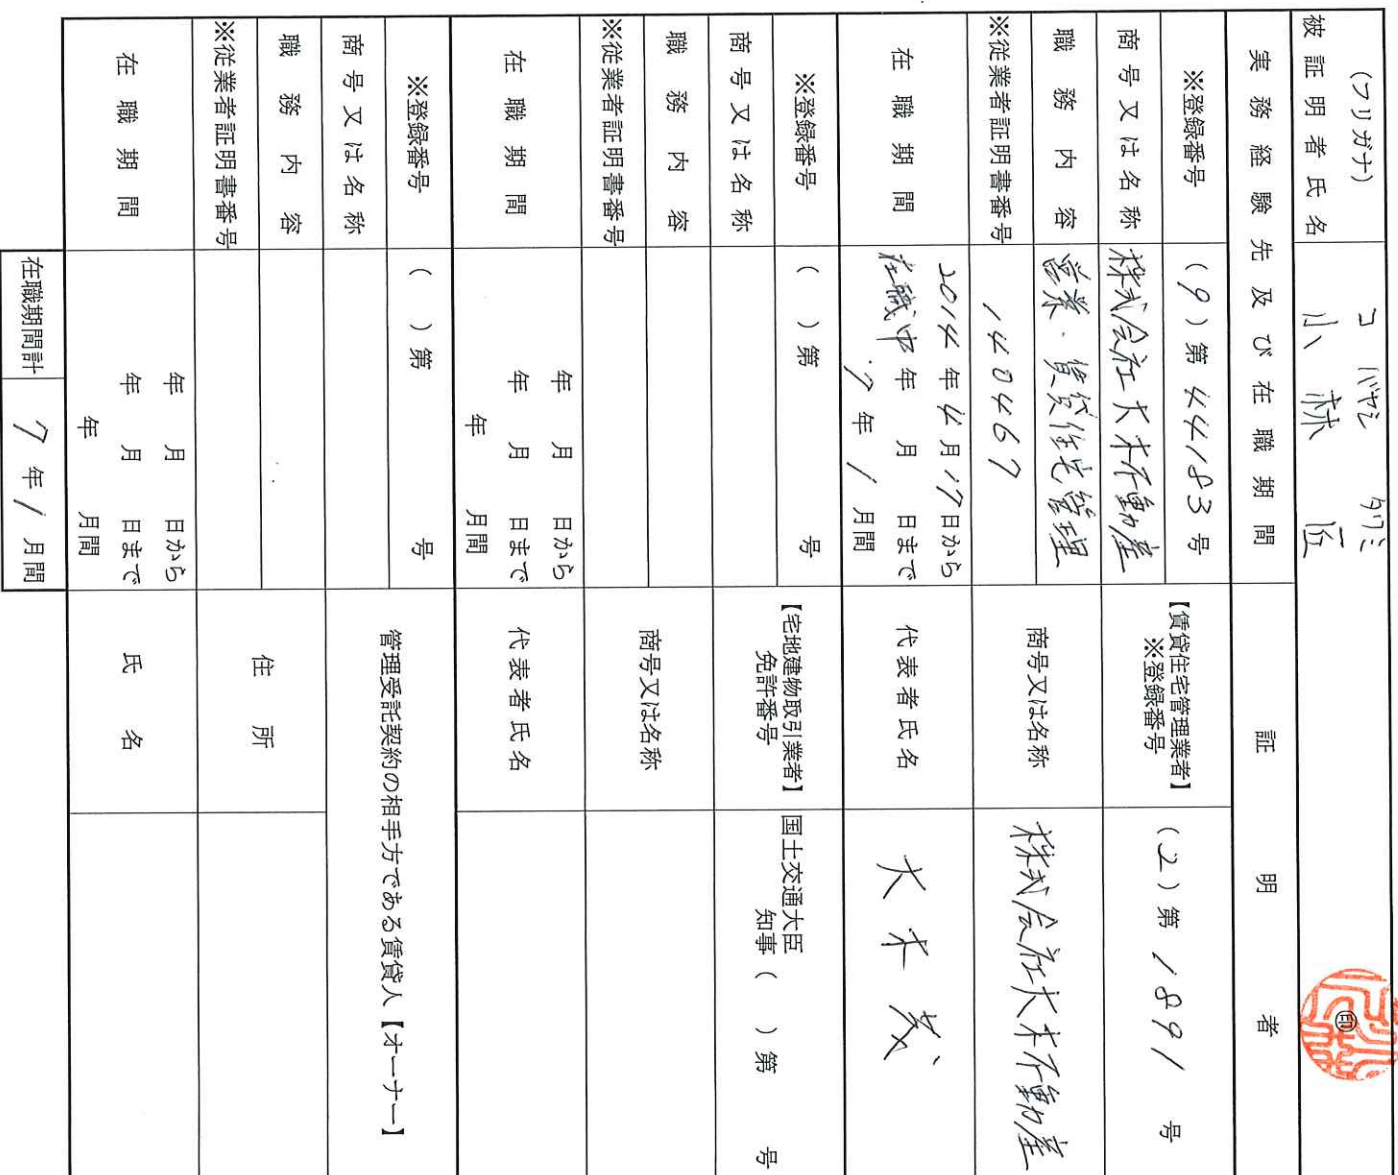 (フリガナ) コバヤシ タクミ
被証明者氏名 小林 匠 ㊞
実務経験先及び在職期間 証明者
※登録番号 (9)第44183号
商号又は名称 株式会社大木不動産
職務内容 営業・賃貸住宅管理
※従業者証明書番号 140467
在職期間 2014年4月17日から
在職中 年 月 日まで
7年1月間
【賃貸住宅管理業者】
※登録番号 (2)第1891号
商号又は名称 株式会社大木不動産
代表者氏名 大木 茂
※登録番号 ( )第 号
商号又は名称
職務内容
※従業者証明書番号
在職期間 年 月 日から
年 月 日まで
年 月間
【宅地建物取引業者】
免許番号
国土交通大臣
知事( )第 号
商号又は名称
代表者氏名
※登録番号 ( )第 号
商号又は名称
職務内容
※従業者証明書番号
在職期間 年 月 日から
年 月 日まで
年 月間
管理受託契約の相手方である賃貸人【オーナー】
住所
氏名
在職期間計 7年1月間